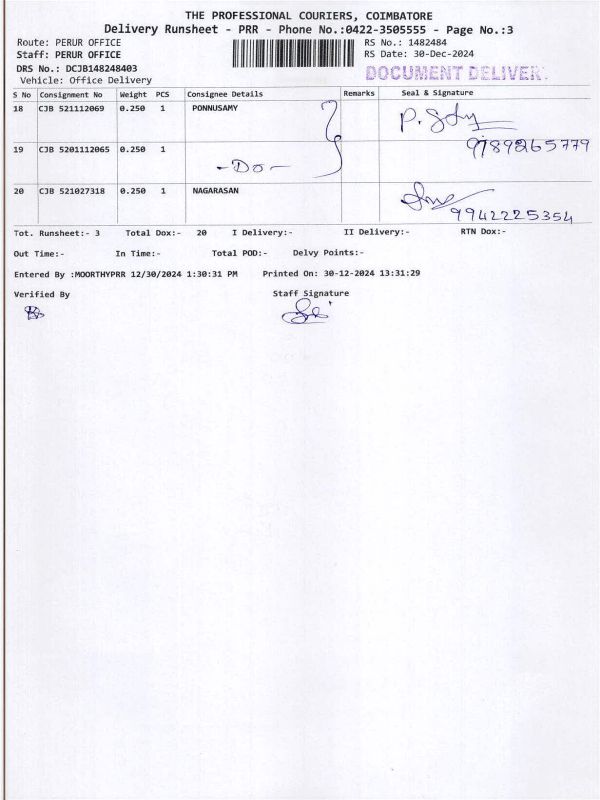 THE PROFESSIONAL COURIERS, COIMBATORE
Delivery Runsheet - PRR - Phone No.:0422-3505555 - Page No.:3
Route: PERUR OFFICE RS No.: 1482484
Staff: PERUR OFFICE RS Date: 30-Dec-2024
DRS No.: DCJB148248403 DOCUMENT DELIVER
Vehicle: Office Delivery
S No Consignment No Weight PCS Consignee Details Remarks Seal & Signature
18 CJB 521112069 0.250 1 PONNUSAMY
9789265779
19 CJB 5201112065 0.250 1 -Do-
20 CJB 521027318 0.250 1 NAGARASAN
9942225354
Tot. Runsheet:- 3 Total Dox:- 20 I Delivery:- II Delivery:- RTN Dox:-
Out Time:- In Time:- Total POD:- Delvy Points:-
Entered By :MOORTHYPRR 12/30/2024 1:30:31 PM Printed On: 30-12-2024 13:31:29
Verified By Staff Signature